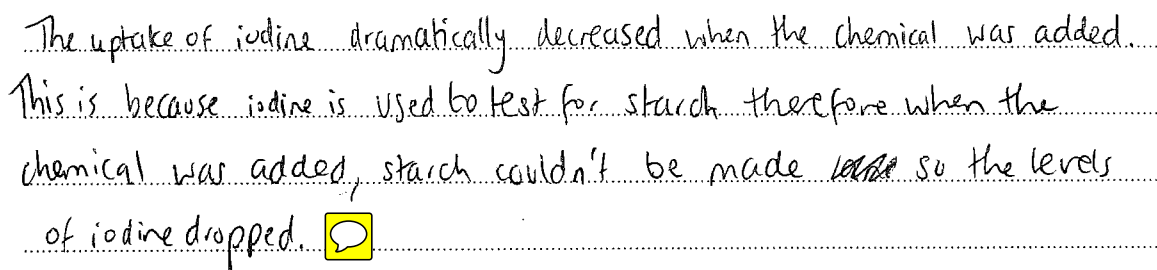 The uptake of iodine dramatically decreased when the chemical was added.
This is because iodine is used to test for starch therefore when the
chemical was added, starch couldn't be made so the levels
of iodine dropped.